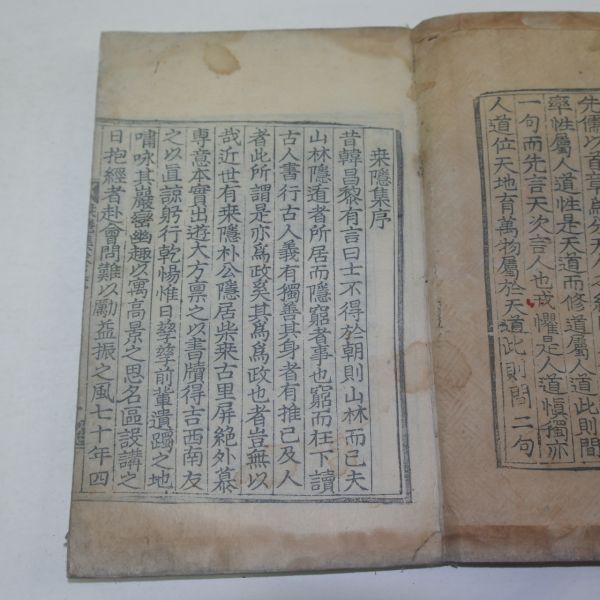 先儒以首章爲分天
率性屬人道性是天道而修道屬人道此則問
一句而先言天次言人也戒懼是人道愼獨亦
人道位天地育萬物屬於天道此則問二句
来隱集序
昔韓昌黎有言曰士不得於朝則山林而已夫
山林隱遁者所居而隱窮者事也窮而在下讀
古人書行古人義有獨善其身者有推己及人
者此所謂是亦爲政奚其爲爲政也者豈無以
哉近世有来隱朴公隱居柴来古里屛絶外慕
專意本實出遊大方禀之以書牘得吉西南友
之以直諒躬行乾惕惟日孶孶前軰遺躅之地
嘯咏其巖巒幽趣以寓高景之思名區設講之
日抱經者赴會問難以勵益振之風七十年四